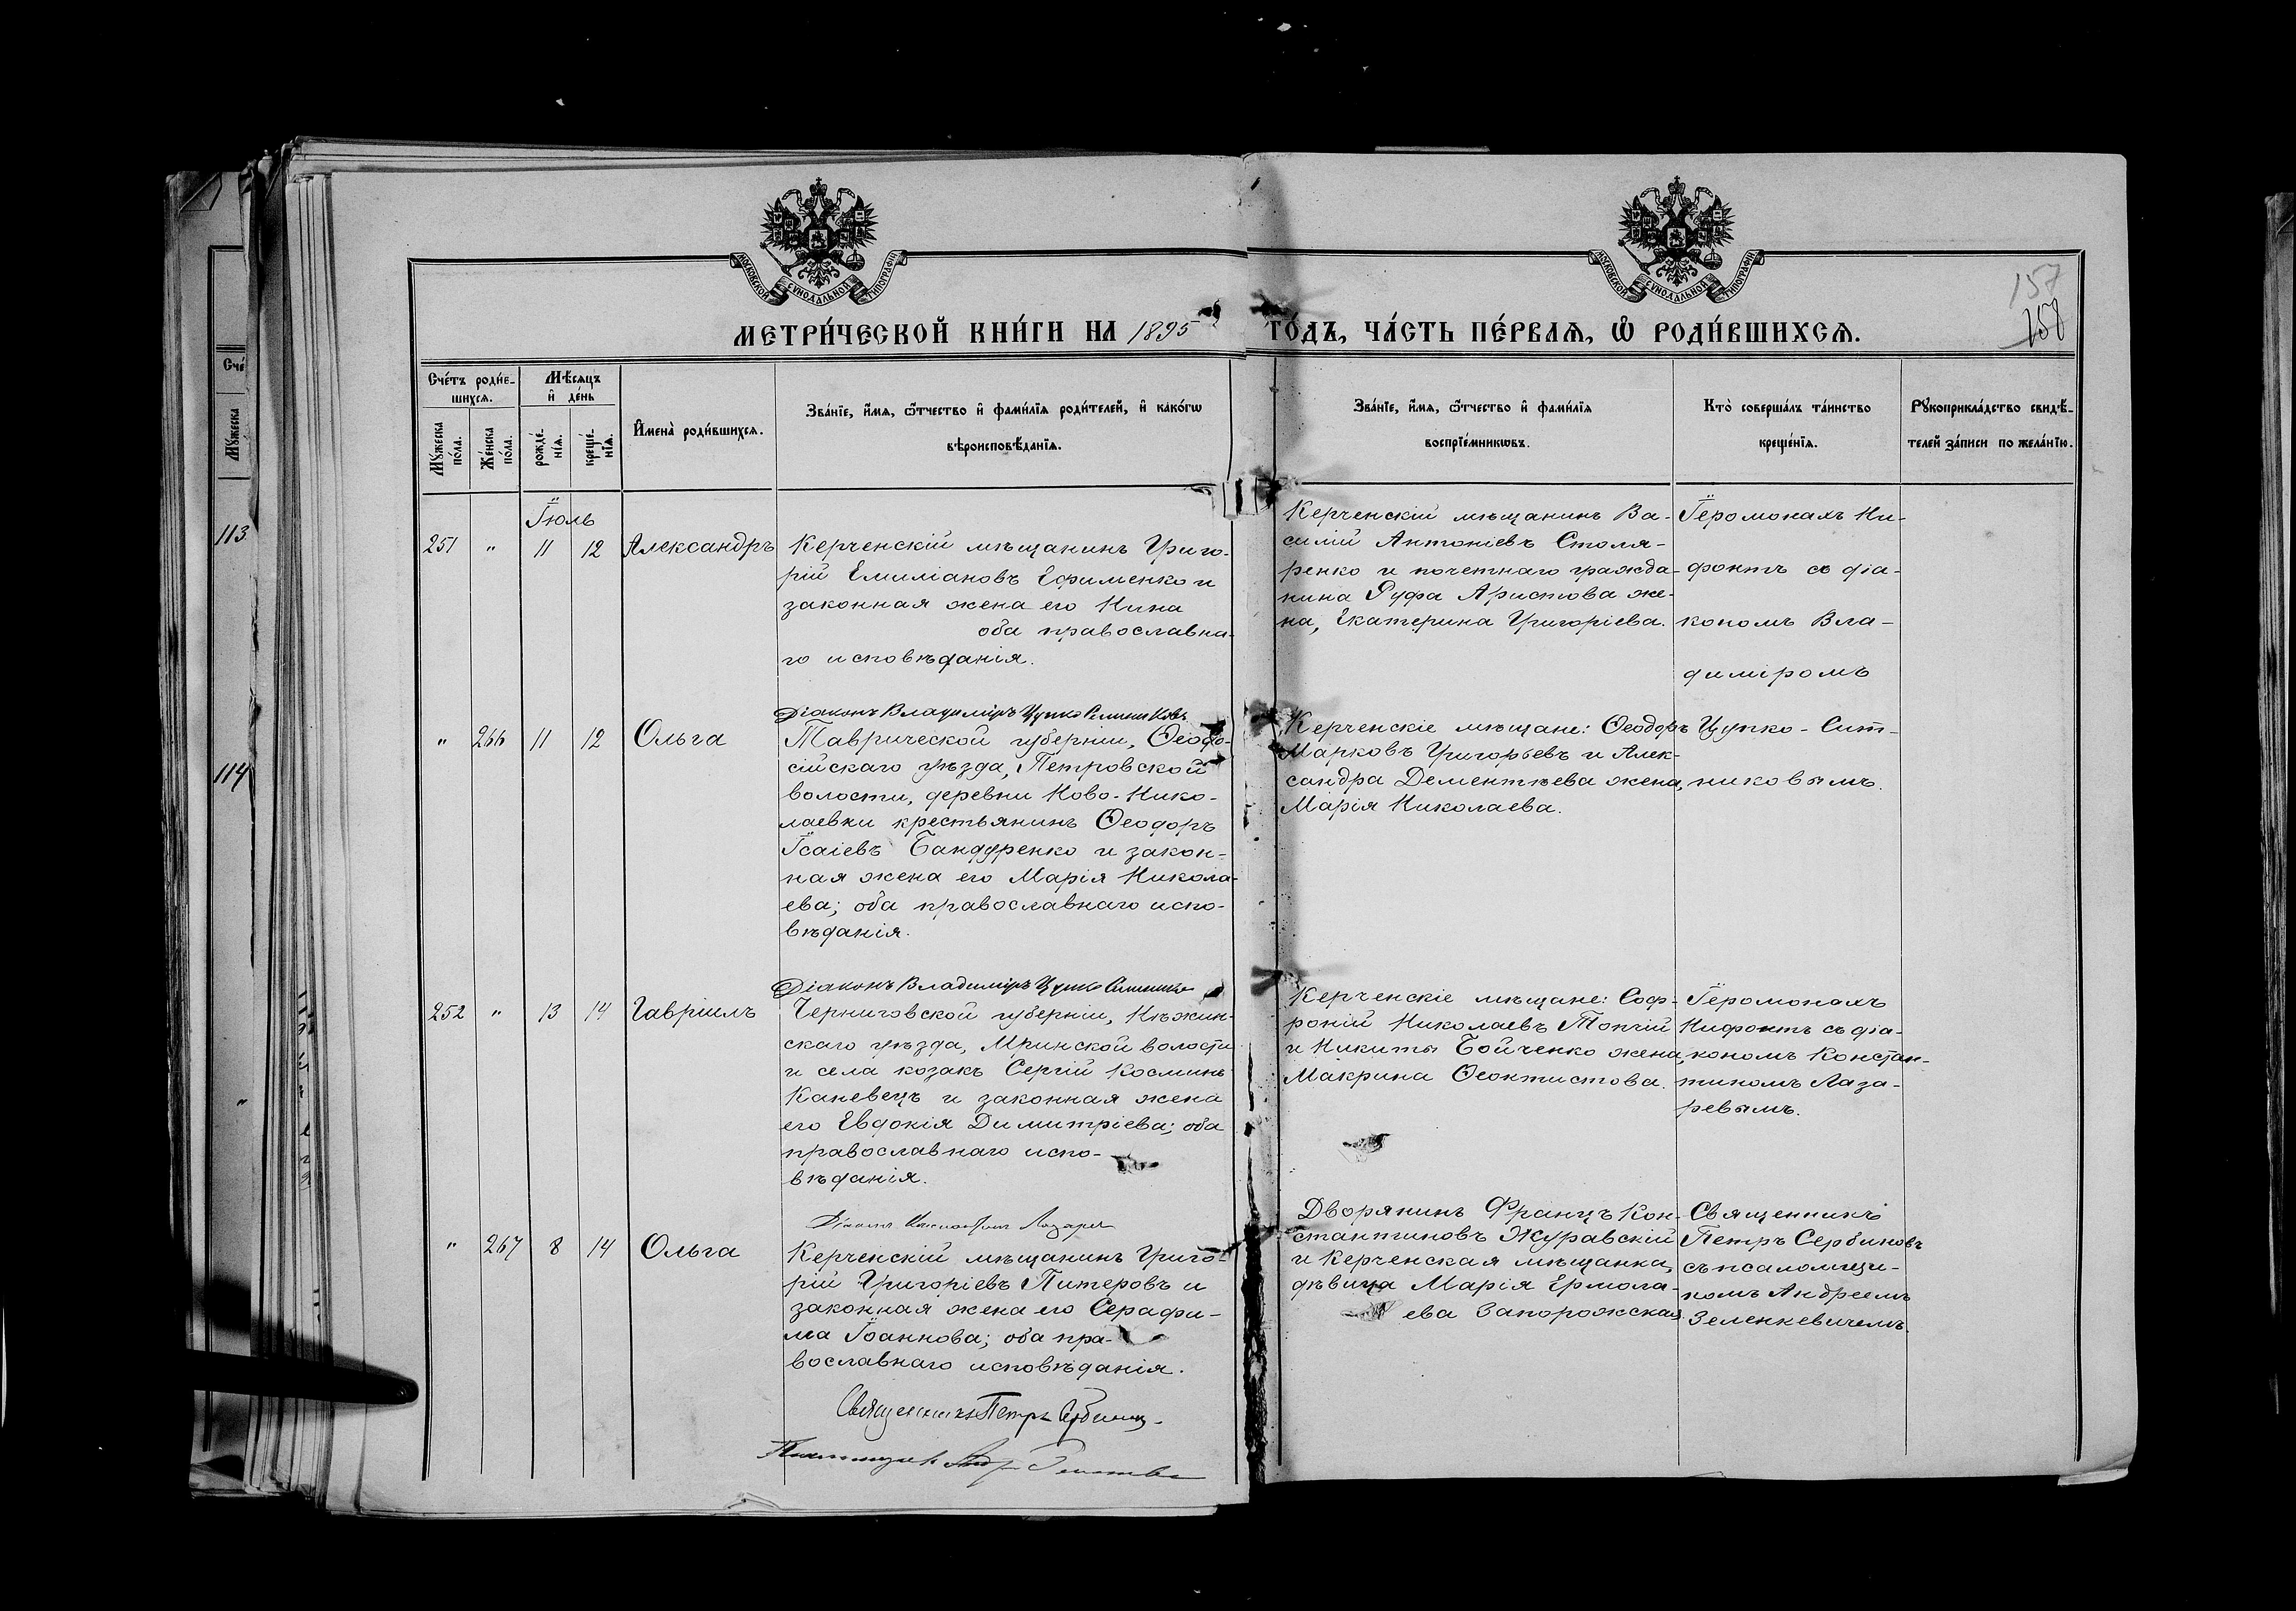 МОСКОВСКОЙ СѴНОДАЛЬНОЙ ТИПОГРАФІИ
МОСКОВСКОЙ СѴНОДАЛЬНОЙ ТИПОГРАФІИ
157
158
МЕТРИ́ЧЕСКОЙ КНИ́ГИ НА 1895 ГО́ДЪ, ЧА́СТЬ ПЕ́РВАЯ, Ѡ҆ РОДИ́ВШИХСЯ.
Сче́тъ роди́в-
шихся.
Мꙋ́жеска по́ла.
Же́нска по́ла.
Мѣ́сяцъ и҆ де́нь
рожде́-
нїя.
креще́-
нїя.
И҆мена̀ роди́вшихся.
Зва́нїе, и҆́мя, ѻ҆́тчество и҆ фами́лїя роди́телей, и҆ како́гѡ
вѣроисповѣ́данїя.
Зва́нїе, и҆́мя, ѻ҆́тчество и҆ фами́лїя
воспрїе́мникѡвъ.
Кто̀ соверша́лъ та́инство
креще́нїя.
Рꙋкоприкла́дство свидѣ́-
телей за́писи по жела́нїю.
Іюль
251 " 11 12 Александръ
Керченскій мѣщанинъ Григо-
рій Емиліановъ Ефименко и
законная жена его Нина
оба православна-
го исповѣданія.
Керченскій мѣщанинъ Ва-
силій Антоніевъ Столя-
ренко и почетнаго гражда-
нина Руфа Аристова же-
на, Екатерина Григоріева.
Іеромонахъ Ни-
фонтъ съ діа-
кономъ Вла-
диміромъ
Цупко-Сит-
никовымъ.
Діаконъ Владиміръ Цупко Ситниковъ
" 266 11 12 Ольга
Таврической губерніи, Ѳеодо-
сійскаго уѣзда, Петровской
волости, деревни Ново-Нико-
лаевки крестьянинъ Ѳеодоръ
Ісаіевъ Бандуренко и закон-
ная жена его Марія Никола-
ева; оба православнаго испо-
вѣданія.
Керченскіе мѣщане: Ѳеодоръ
Марковъ Григорьевъ и Алек-
сандра Дементьева жена,
Марія Николаева.
Діаконъ Владиміръ Цупко
252 " 13 14 Гавріилъ
Черниговской губерніи, Нѣжин-
скаго уѣзда, Мринской волости
и села козакъ Сергій Косминъ
Каневецъ и законная жена
его Евдокія Димитріева; оба
православнаго испо-
вѣданія.
Керченскіе мѣщане: Соф-
роній Николаевъ Топчій
и Никиты Бойченко жена,
Макрина Ѳеоктистова.
Іеромонахъ
Нифонтъ съ діа-
кономъ Констан-
тиномъ Лаза-
ревымъ.
Діаконъ Константинъ Лазарев
" 267 8 14 Ольга
Керченскій мѣщанинъ Григо-
рій Григоріевъ Питеровъ и
законная жена его Серафи-
ма Іоаннова; оба пра-
вославнаго исповѣданія.
Дворянинъ Францъ Кон-
стантиновъ Журавскій
и Керченская мѣщанка,
дѣвица Марія Ермола-
ева Запорожская.
Священникъ
Петръ Сербиновъ
съ псаломщи-
комъ Андреемъ
Зеленкевичемъ.
Священникъ Петръ Сербинов
113
114